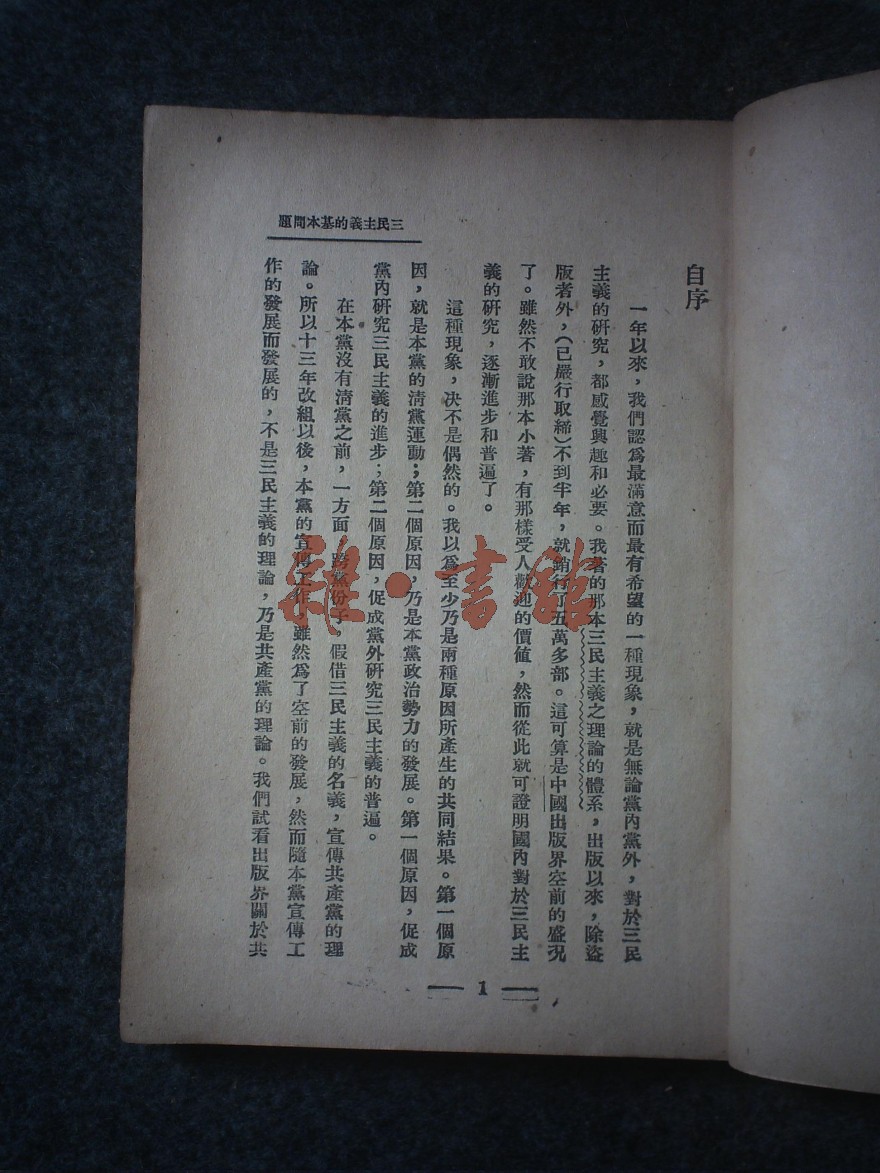 三民主義的基本問題
自序
一年以來，我們認爲最滿意而最有希望的一種現象，就是無論黨內黨外，對於三民
主義的研究，都感覺興趣和必要。我著的那本三民主義之理論的體系，出版以來，除盜
版者外，（已嚴行取締）不到半年，就銷行了五萬多部。這可算是中國出版界空前的盛況
了。雖然不敢說那本小著，有那樣受人歡迎的價值，然而從此就可證明國內對於三民主
義的研究，逐漸進步和普遍了。
這種現象，決不是偶然的。我以爲至少乃是兩種原因所產生的共同結果。第一個原
因，就是本黨的清黨運動；第二個原因，乃是本黨政治勢力的發展。第一個原因，促成
黨內研究三民主義的進步；第二個原因，促成黨外研究三民主義的普遍。
在本黨沒有清黨之前，一方面，跨黨份子，假借三民主義的名義，宣傳共產黨的理
論。所以十三年改組以後，本黨的宣傳工作，雖然爲了空前的發展，然而隨本黨宣傳工
作的發展而發展的，不是三民主義的理論，乃是共產黨的理論。我們試看出版界關於共
1
雜·書館